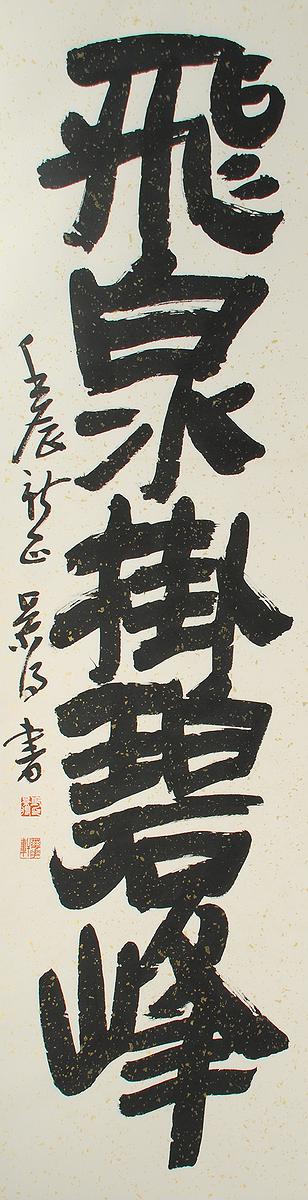 飛泉掛碧峰
壬辰新正 景陽書